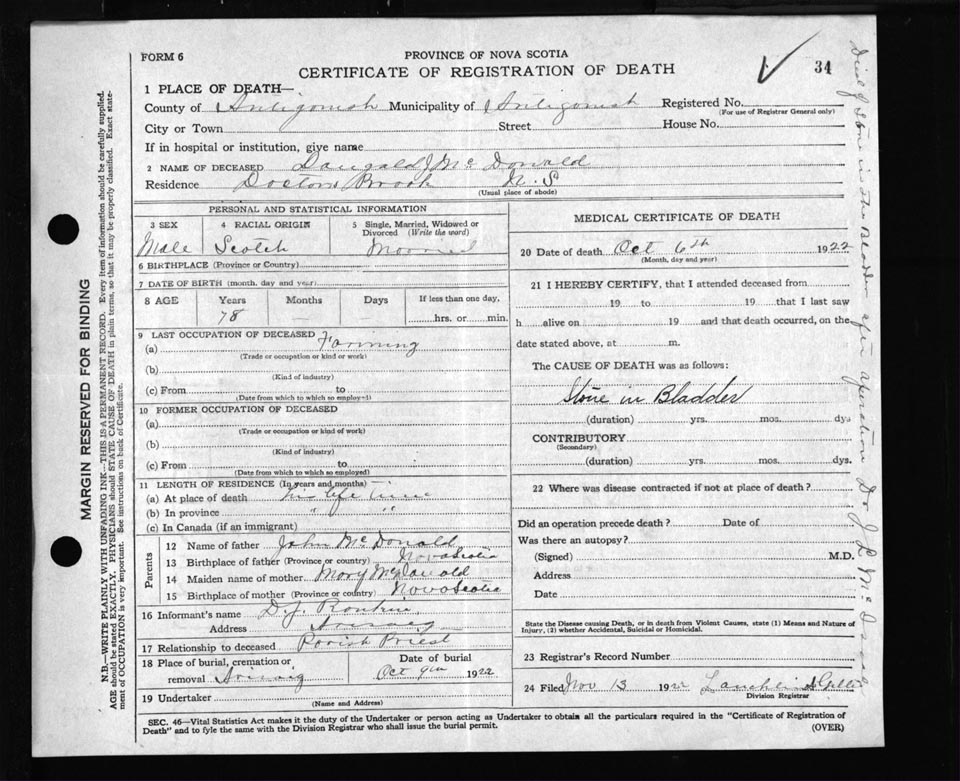 FORM 6
PROVINCE OF NOVA SCOTIA
CERTIFICATE OF REGISTRATION OF DEATH
34
1 PLACE OF DEATH—
County of Antigonish Municipality of Antigonish Registered No.
(For use of Registrar General only)
City or Town Street House No.
If in hospital or institution, give name
2 NAME OF DECEASED Dougald J Mc Donald
Residence Doctors Brook N. S
(Usual place of abode)
PERSONAL AND STATISTICAL INFORMATION
3 SEX 4 RACIAL ORIGIN 5 Single, Married, Widowed or Divorced (Write the word)
Male Scotch Married
6 BIRTHPLACE (Province or Country)
7 DATE OF BIRTH (month, day and year)
8 AGE Years Months Days If less than one day,
78 — — hrs. or min.
9 LAST OCCUPATION OF DECEASED
(a) Farming
(Trade or occupation or kind or work)
(b)
(Kind of industry)
(c) From to
(Date from which to which so employed)
10 FORMER OCCUPATION OF DECEASED
(a)
(Trade or occupation or kind of work)
(b)
(Kind of industry)
(c) From to
(Date from which to which so employed)
11 LENGTH OF RESIDENCE (In years and months)
(a) At place of death his life time
(b) In province " "
(c) In Canada (if an immigrant)
Parents
12 Name of father John McDonald
13 Birthplace of father (Province or country) Nova Scotia
14 Maiden name of mother Mary McDonald
15 Birthplace of mother (Province or country) Nova Scotia
16 Informant's name D. J. Rankin
Address Arisaig
17 Relationship to deceased Parish Priest
18 Place of burial, cremation or removal Arisaig
Date of burial Oct 9th 1922
19 Undertaker
(Name and Address)
MEDICAL CERTIFICATE OF DEATH
20 Date of death Oct 6th 1922
(Month, day and year)
21 I HEREBY CERTIFY, that I attended deceased from
19 to 19 that I last saw
h alive on 19 and that death occurred, on the
date stated above, at m.
The CAUSE OF DEATH was as follows:
Stone in Bladder
(duration) yrs. mos. dys
CONTRIBUTORY
(Secondary)
(duration) yrs. mos. dys.
22 Where was disease contracted if not at place of death?
Did an operation precede death? Date of
Was there an autopsy?
(Signed) M.D.
Address
Date
State the Disease causing Death, or in death from Violent Causes, state (1) Means and Nature of
Injury, (2) whether Accidental, Suicidal or Homicidal.
23 Registrar's Record Number
24 Filed Nov 13 1922 Lauchlin
Division Registrar
SEC. 46—Vital Statistics Act makes it the duty of the Undertaker or person acting as Undertaker to obtain all the particulars required in the "Certificate of Registration of
Death" and to fyle the same with the Division Registrar who shall issue the burial permit.
(OVER)
MARGIN RESERVED FOR BINDING
N.B.—WRITE PLAINLY WITH UNFADING INK—THIS IS A PERMANENT RECORD. Every item of information should be carefully supplied.
AGE should be stated EXACTLY. PHYSICIANS should STATE CAUSE OF DEATH in plain terms, so that it may be properly classified. Exact state-
ment of OCCUPATION is very important. See instructions on back of Certificate.
Died of Stone in the Bladder after operation Dr J L